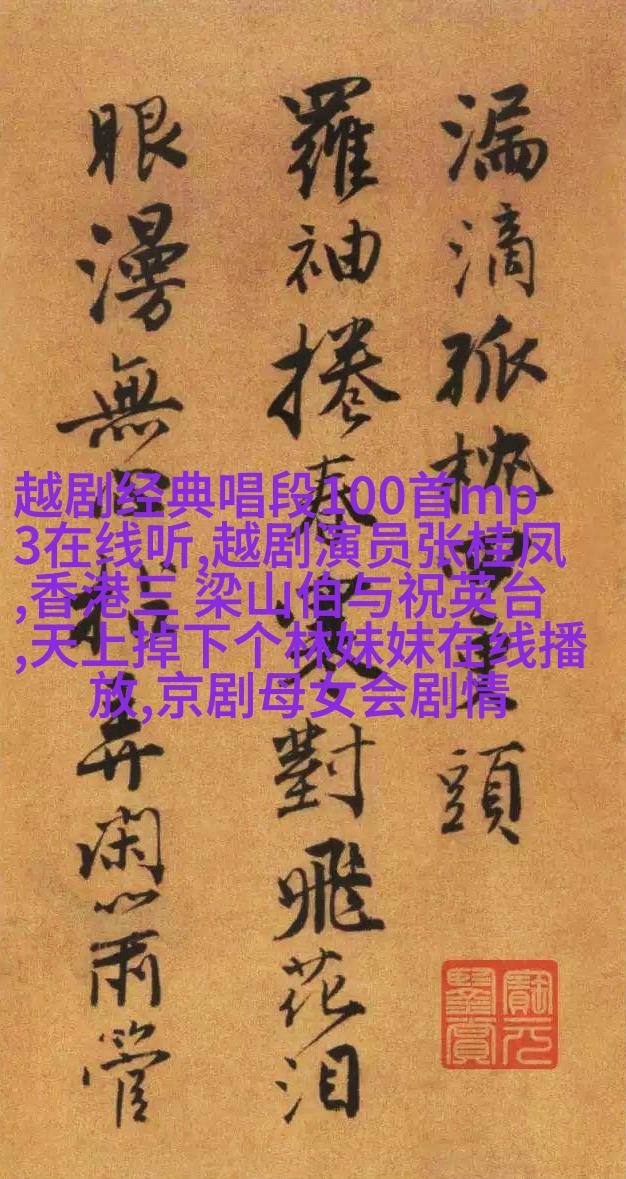 漏滴孤枕頭
羅袖捲春寒對飛花泪
眼漫無弄閑心兩管
越剧经典唱段100首mp
3在线听,越剧演员张桂凤
,香港三 梁山伯与祝英台
,天上掉下个林妹妹在线播
放,京剧母女会剧情